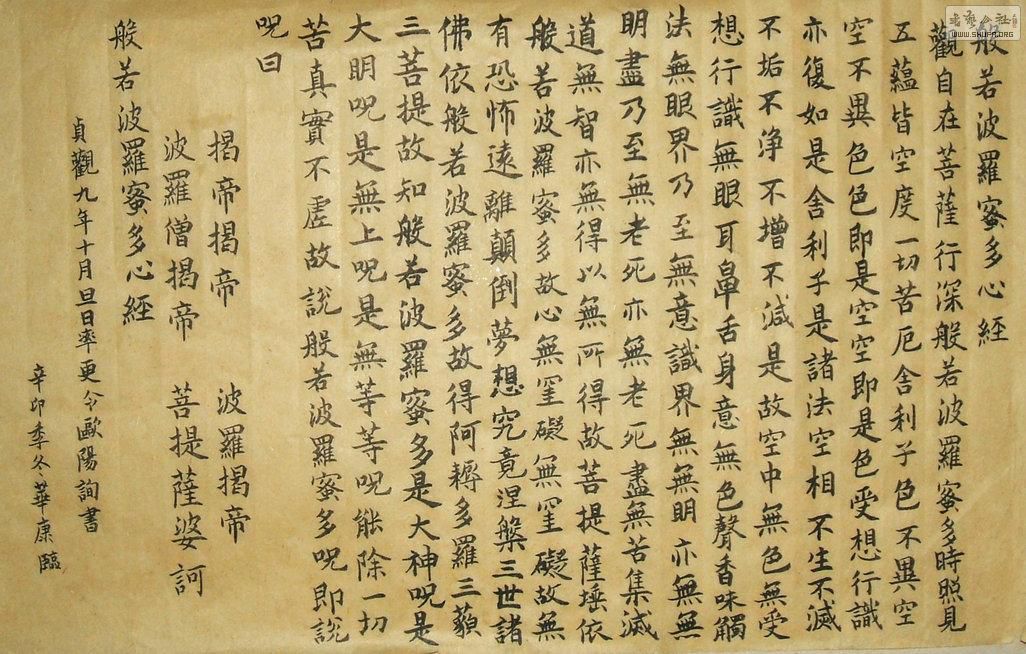 般若波羅蜜多心經
觀自在菩薩行深般若波羅蜜多時照見
五蘊皆空度一切苦厄舍利子色不異空
空不異色色即是空空即是色受想行識
亦復如是舍利子是諸法空相不生不滅
不垢不净不增不減是故空中無色無受
想行識無眼耳鼻舌身意無色聲香味觸
法無眼界乃至無意識界無無明亦無無
明盡乃至無老死亦無老死盡無苦集滅
道無智亦無得以無所得故菩提薩埵依
般若波羅蜜多故心無罣礙無罣礙故無
有恐怖遠離顛倒夢想究竟涅槃三世諸
佛依般若波羅蜜多故得阿耨多羅三藐
三菩提故知般若波羅蜜多是大神呪是
大明呪是無上呪是無等等呪能除一切
苦真實不虛故說般若波羅蜜多呪即說
呪曰
揭帝揭帝 波羅揭帝
波羅僧揭帝 菩提薩婆訶
般若波羅蜜多心經
貞觀九年十月旦日率更令歐陽詢書
辛卯季冬華康臨
書藝公社
WWW.SHUFA.ORG